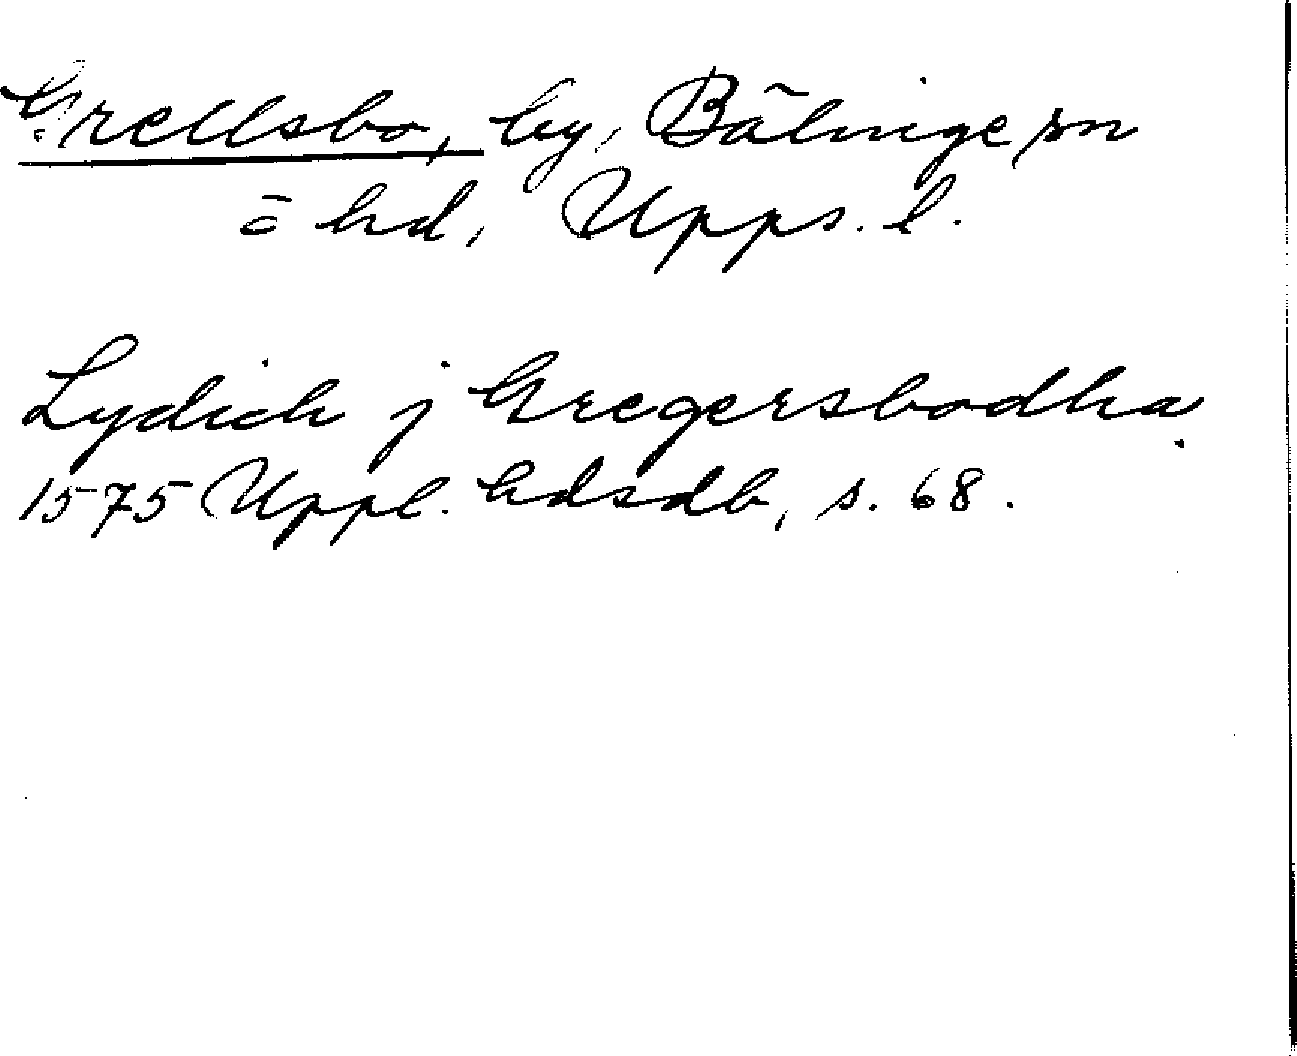 Grellsbo, by, Bälinge sn
o hd, Upps. l.
Lydich j Gregersbodha
1575 Uppl. hdsdb, s. 68.